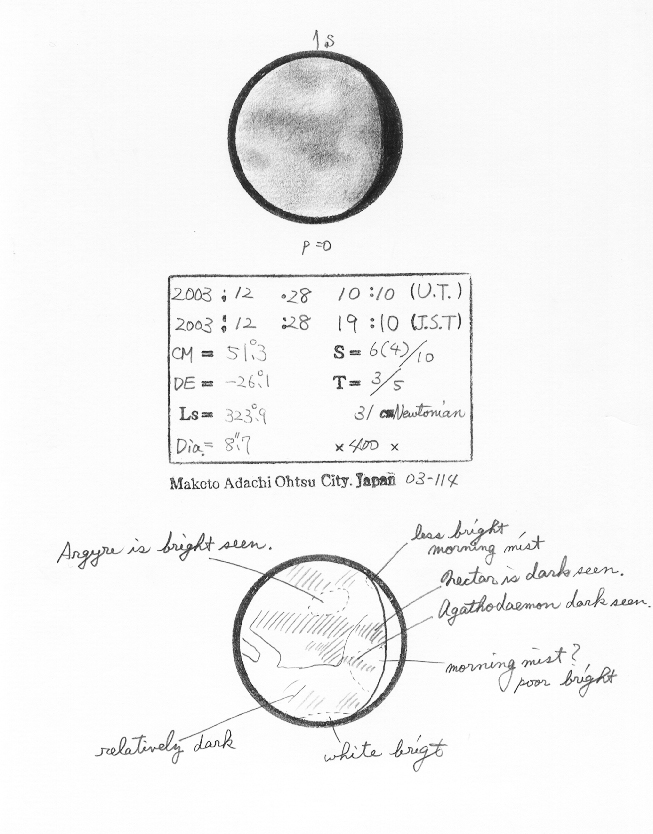 S
P=0
2003 : 12 :28 10:10 (U.T.)
2003 : 12 :28 19:10 (J.S.T)
CM = 51°.3 S = 6(4)/10
DE = -26°.1 T = 3/5
Ls = 323°.9 31 cm Newtonian
Dia. = 8".7 × 400 ×
Makoto Adachi Ohtsu City. Japan 03-114
Argyre is bright seen.
less bright
morning mist
Nectar is dark seen.
Agathodaemon dark seen.
morning mist?
poor bright
relatively dark
white brigt